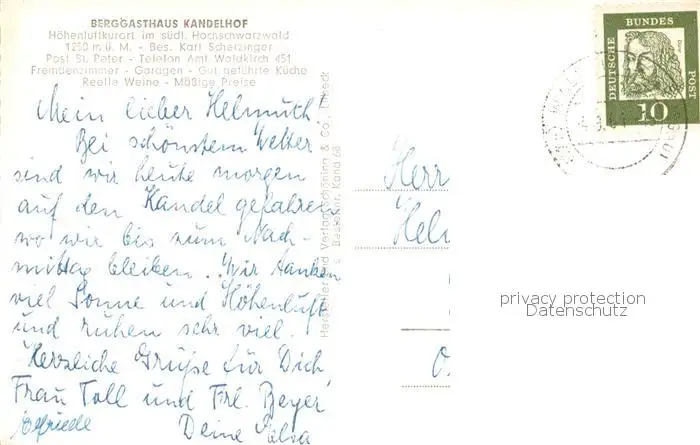 BERGGASTHAUS KANDELHOF
Höhenluftkurort im südl. Hochschwarzwald
1250 m ü. M. - Bes. Karl Scherzinger
Post St. Peter - Telefon Amt Waldkirch 451
Fremdenzimmer - Garagen - Gut geführte Küche
Reelle Weine - Mäßige Preise
Mein lieber Helmuth!
Bei schönstem Wetter
sind wir heute morgen
auf den Kandel gefahren
wo wir bis zum Nach-
mittag bleiben. Wir tanken
viel Sonne und Höhenluft
und ruhen sehr viel.
Herzliche Grüße für Dich,
Frau Toll und Frl. Beyer
Deine
Hersteller und Verlag Schöning & Co., Lübeck
Bestellnr. Kand 68
DEUTSCHE BUNDESPOST
Dürer
10
Herr
Hel
privacy protection
Datenschutz